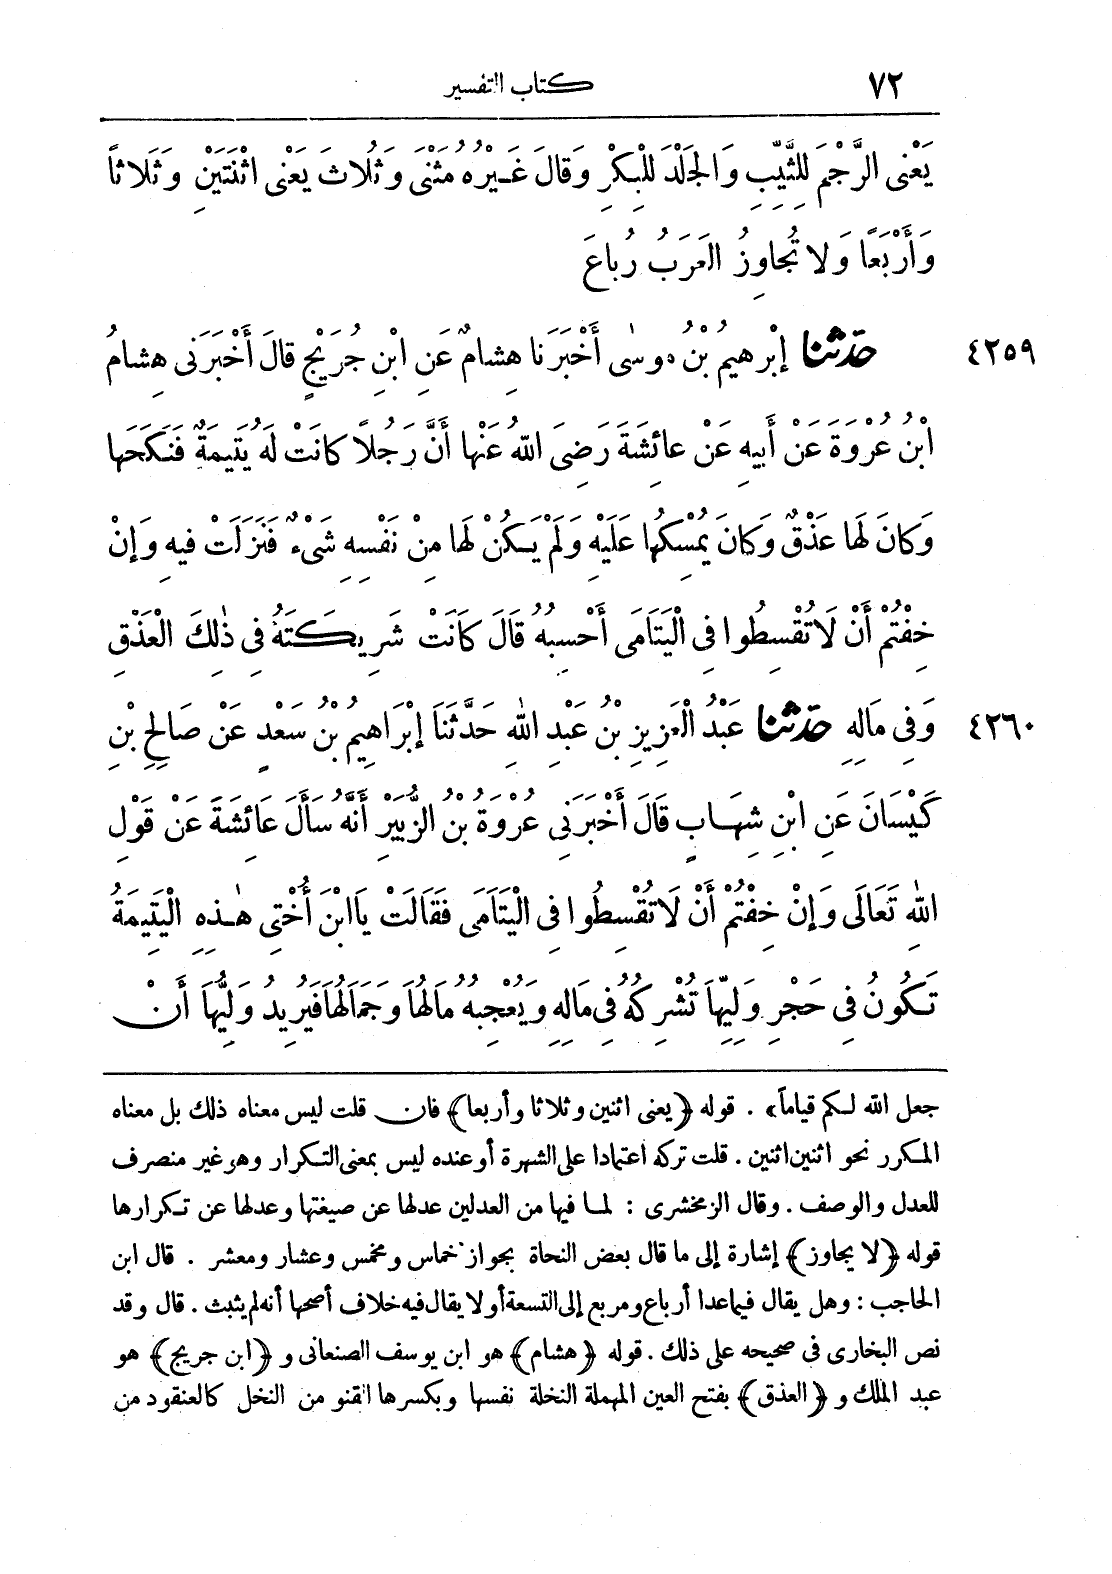 ٧٢ كتاب التفسير
يَعْنِى الرَّجْمَ لِلثَّيِّبِ وَالجَلْدَ لِلْبِكْرِ وَقَالَ غَيْرُهُ مَثْنَى وَثُلاثَ يَعْنِى اثْنَتَيْنِ وَثَلَاثاً
وَأَرْبَعاً وَلا تُجاوِزُ العَرَبُ رُباعَ
٤٢٥٩ حَدَّثَنَا إبْرهيمُ بْنُ موسٰى أَخْبَرَنا هِشامٌ عَنِ ابْنِ جُرَيْجٍ قالَ أَخْبَرَنِى هِشامُ
ابْنُ عُرْوَةَ عَنْ أَبيهِ عَنْ عائِشَةَ رَضِىَ اللهُ عَنْها أَنَّ رَجُلاً كانَتْ لَهُ يَتيمَةٌ فَنَكَحَها
وَكانَ لَها عَذْقٌ وَكانَ يُمْسِكُها عَلَيْهِ وَلَمْ يَكُنْ لَها مِنْ نَفْسِهِ شَىْءٌ فَنَزَلَتْ فيهِ وَإنْ
خِفْتُمْ أَنْ لَا تُقْسِطُوا فِى الْيَتَامَى أَحْسِبُهُ قَالَ كَانَتْ شَرِيكَتَهُ فِى ذٰلِكَ الْعَذْقِ
٤٢٦٠ وَفِى مَالِهِ حَدَّثَنَا عَبْدُ الْعَزِيزِ بْنُ عَبْدِ اللهِ حَدَّثَنَا إبْرَاهِيمُ بْنُ سَعْدٍ عَنْ صَالِحِ بْنِ
كَيْسَانَ عَنِ ابْنِ شِهَابٍ قَالَ أَخْبَرَنِى عُرْوَةُ بْنُ الزُّبَيْرِ أَنَّهُ سَأَلَ عَائِشَةَ عَنْ قَوْلِ
اللهِ تَعَالَى وَإنْ خِفْتُمْ أَنْ لَا تُقْسِطُوا فِى الْيَتَامَى فَقَالَتْ يَا ابْنَ أُخْتِى هٰذِهِ الْيَتِيمَةُ
تَكُونُ فِى حَجْرِ وَلِيِّهَا تُشْرِكُهُ فِى مَالِهِ وَيُعْجِبُهُ مَالُهَا وَجَمَالُهَا فَيُرِيدُ وَلِيُّهَا أَنْ
جعل الله لكم قياماً﴾ . قوله ﴿يعنى اثنين وثلاثا وأربعا﴾ فان قلت ليس معناه ذلك بل معناه
المكرر نحو اثنين اثنين . قلت تركه اعتمادا على الشهرة أو عنده ليس بمعنى التكرار وهو غير منصرف
للعدل والوصف . وقال الزمخشرى : لما فيها من العدلين عدلها عن صيغتها وعدلها عن تكرارها
قوله ﴿لا يجاوز﴾ إشارة إلى ما قال بعض النحاة بجواز خماس ومخمس وعشار ومعشر . قال ابن
الحاجب : وهل يقال فيما عدا أرباع ومربع إلى التسعة أو لا يقال فيه خلاف أصحها أنه لم يثبت . قال وقد
نص البخارى فى صحيحه على ذلك . قوله ﴿هشام﴾ هو ابن يوسف الصنعانى و ﴿ابن جريج﴾ هو
عبد الملك و ﴿العذق﴾ بفتح العين المهملة النخلة نفسها وبكسرها القنو من النخل كالعنقود من